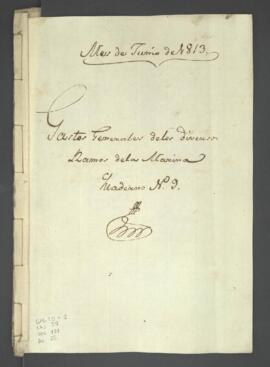 Mes de Junio de 1813.
Gastos Generales delos diversos
Ramos dela Marina
Quaderno N.º 9.